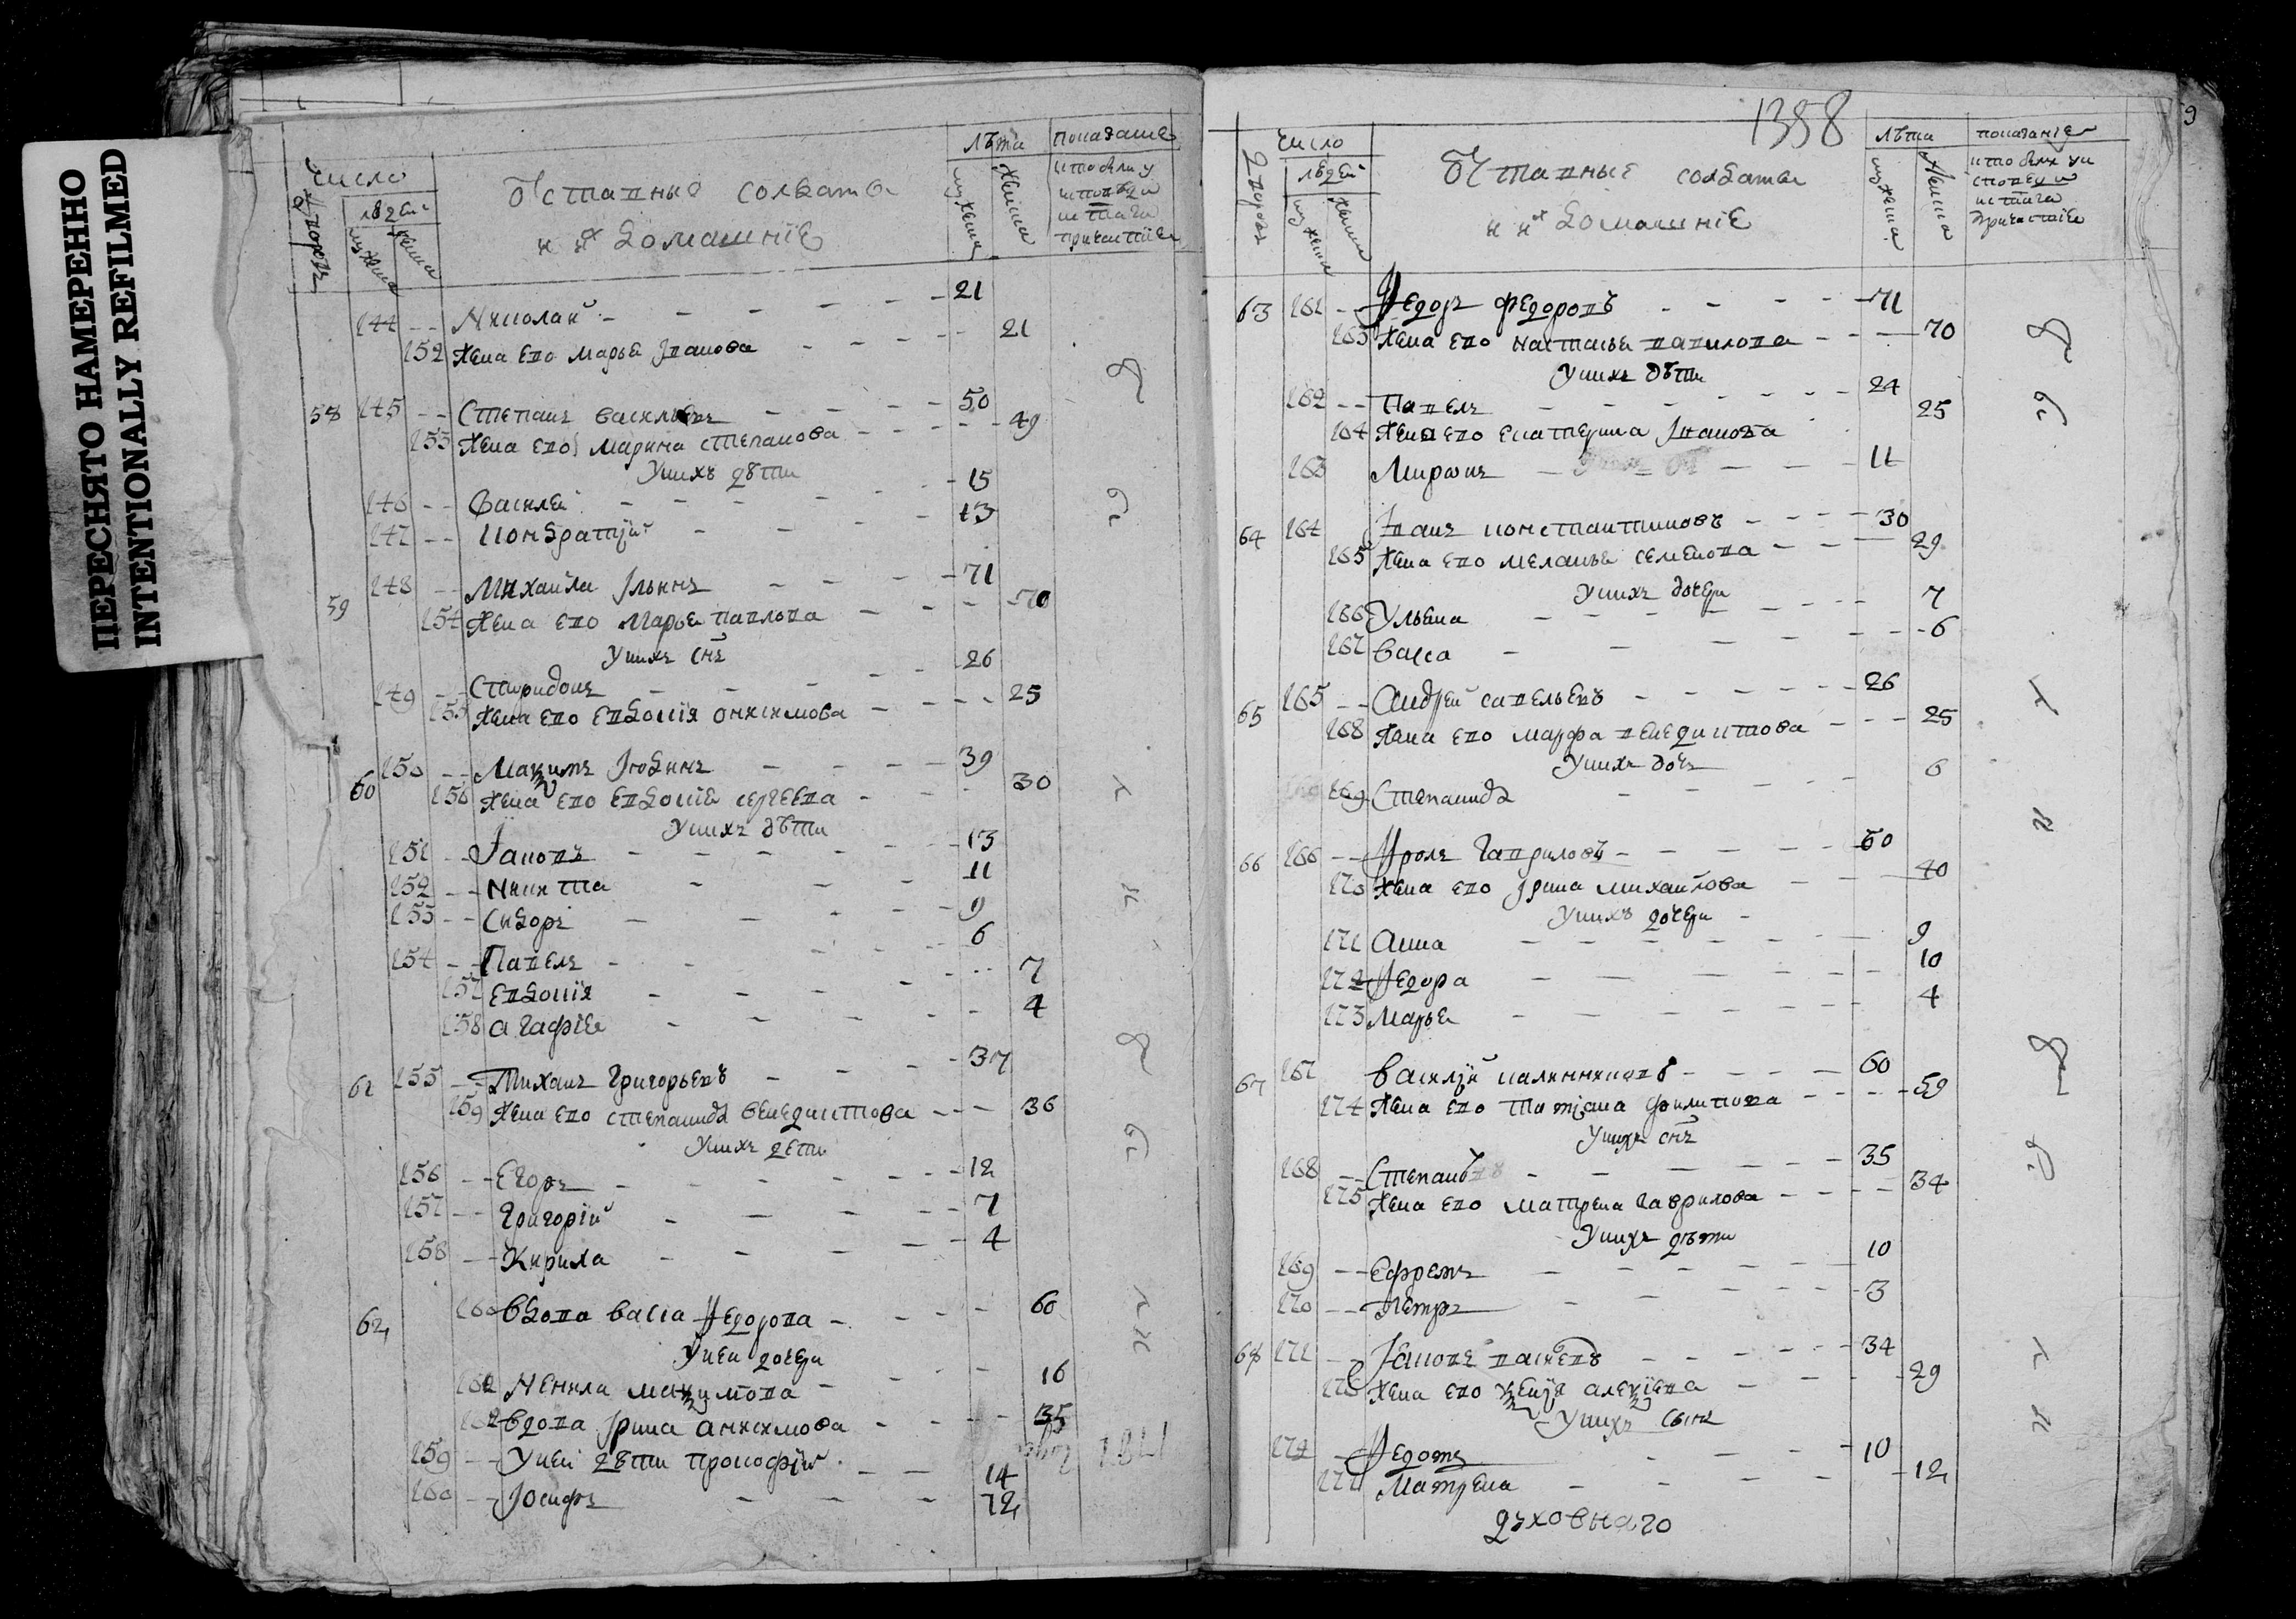 ПЕРЕСНЯТО НАМЕРЕННО
INTENTIONALLY REFILMED
число
дворовъ
людей
мужеска
женска
Отставные солдаты
и их домашніе
Лѣта
мужеска
женска
показаніе
кто былъ у
исповѣди
и с̃таго
причастіѧ
144 Николай 21
152 жена ево Марья Iванова 21
58 145 Степанъ Васильевъ 50
153 жена ево Марина Степанова 49
У нихъ дѣти
146 Василей 15
147 Кондратiй 13
59 148 Михаила Iльинъ 71
154 жена ево Марья Павлова 70
У нихъ с̃нъ
149 Спиридонъ 26
155 жена ево Евдокія Онисимова 25
60 150 Маѯимъ Iюдинъ 39
156 жена ево Евдокіѧ Сергеева 30
У нихъ дѣти
151 Iаковъ 13
152 Никита 11
153 Сидоръ 9
154 Павелъ 6
157 Евдокія 7
158 Агафіѧ 4
61 155 Тиханъ Григорьевъ 37
159 жена ево Степанида Венедиктова 36
У нихъ дети
156 Егоръ 12
157 Григорiй 7
158 Кирила 4
62 160 вдова Васса Ѳедорова 60
У неи дочери
161 Ненила Маѯимова 16
162 вдова Iрина Анисимова 35
159 У неи дѣти Прокофiй 14
160 Iосифъ 12
1358
9
число
дворовъ
людей
мужеска
женска
Отставные солдаты
и их домашніе
Лѣта
мужеска
женска
показаніе
кто былъ у
исповеди
и с̃таго
причастіѧ
63 161 Ѳедоръ Федоровъ 71
163 жена ево Настасья Гаврилова 70
У нихъ дѣти
162 Павелъ 24
164 жена ево Екатерина Iванова 25
163 Миронъ 11
64 164 Iванъ Константиновъ 30
165 жена ево Меланья Семенова 29
У нихъ дочери
166 Ульяна 7
167 Васса 6
65 165 Андрей Савельевъ 26
168 жена ево Марфа Венедиктова 25
У нихъ дочь
169 Степанида 6
66 166 Ѳролъ Гавриловъ 50
170 жена ево Iрина Михайлова 40
У нихъ дочери
171 Анна 9
172 Ѳедора 10
173 Марья 4
67 167 Василiй Калинниковъ 60
174 жена ево Татiана Филипова 59
У нихъ с̃нъ
168 Степанъ 35
175 жена ево Матрена Гаврилова 34
У нихъ дѣти
169 Ефремъ 10
170 Петръ 3
68 171 Iаковъ 34
176 жена ево Ѯенiя Алеѯiева 29
У нихъ сынъ
172 Ѳедотъ 10
177 Матрена 12
духовнаго